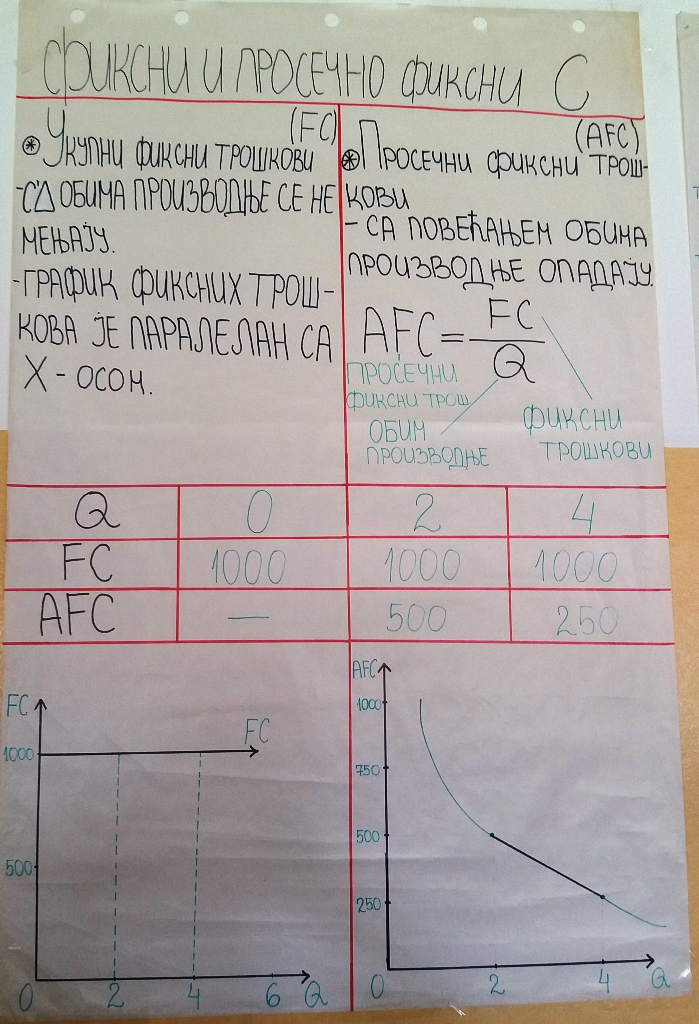 ФИКСНИ И ПРОСЕЧНО ФИКСНИ С
(FC)
УКУПНИ ФИКСНИ ТРОШКОВИ
-СА ОБИМА ПРОИЗВОДЊЕ СЕ НЕ
МЕЊАЈУ.
-ГРАФИК ФИКСНИХ ТРОШ-
КОВА ЈЕ ПАРАЛЕЛАН СА
X - ОСОМ.
(AFC)
ПРОСЕЧНИ ФИКСНИ ТРОШ-
КОВИ
- СА ПОВЕЋАЊЕМ ОБИМА
ПРОИЗВОДЊЕ ОПАДАЈУ.
AFC = FC
Q
ПРОСЕЧНИ
ФИКСНИ ТРОШ.
ОБИМ
ПРОИЗВОДЊЕ
ФИКСНИ
ТРОШКОВИ
Q 0 2 4
FC 1000 1000 1000
AFC — 500 250
FC
FC
1000
500
0 2 4 6 Q
AFC
1000
750
500
250
0 2 4 Q